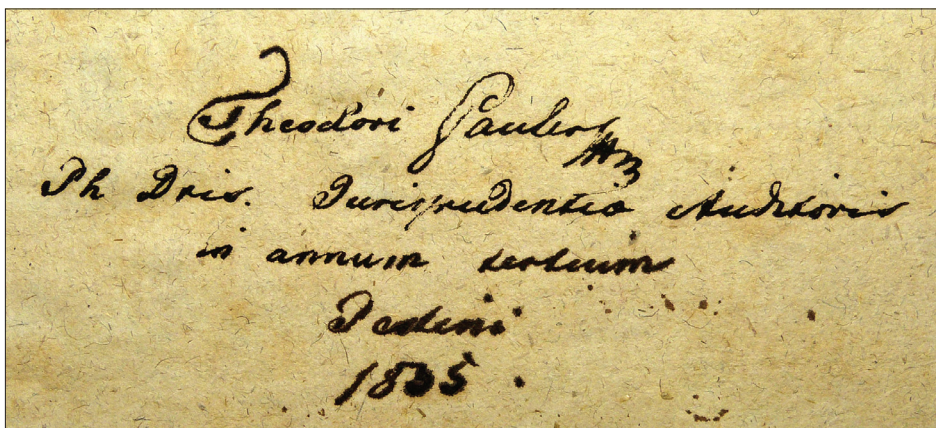 Theodori Pauler
Ph Dris. Jurisprudentiæ Auditoris
in annum tertium
Pestini
1835.